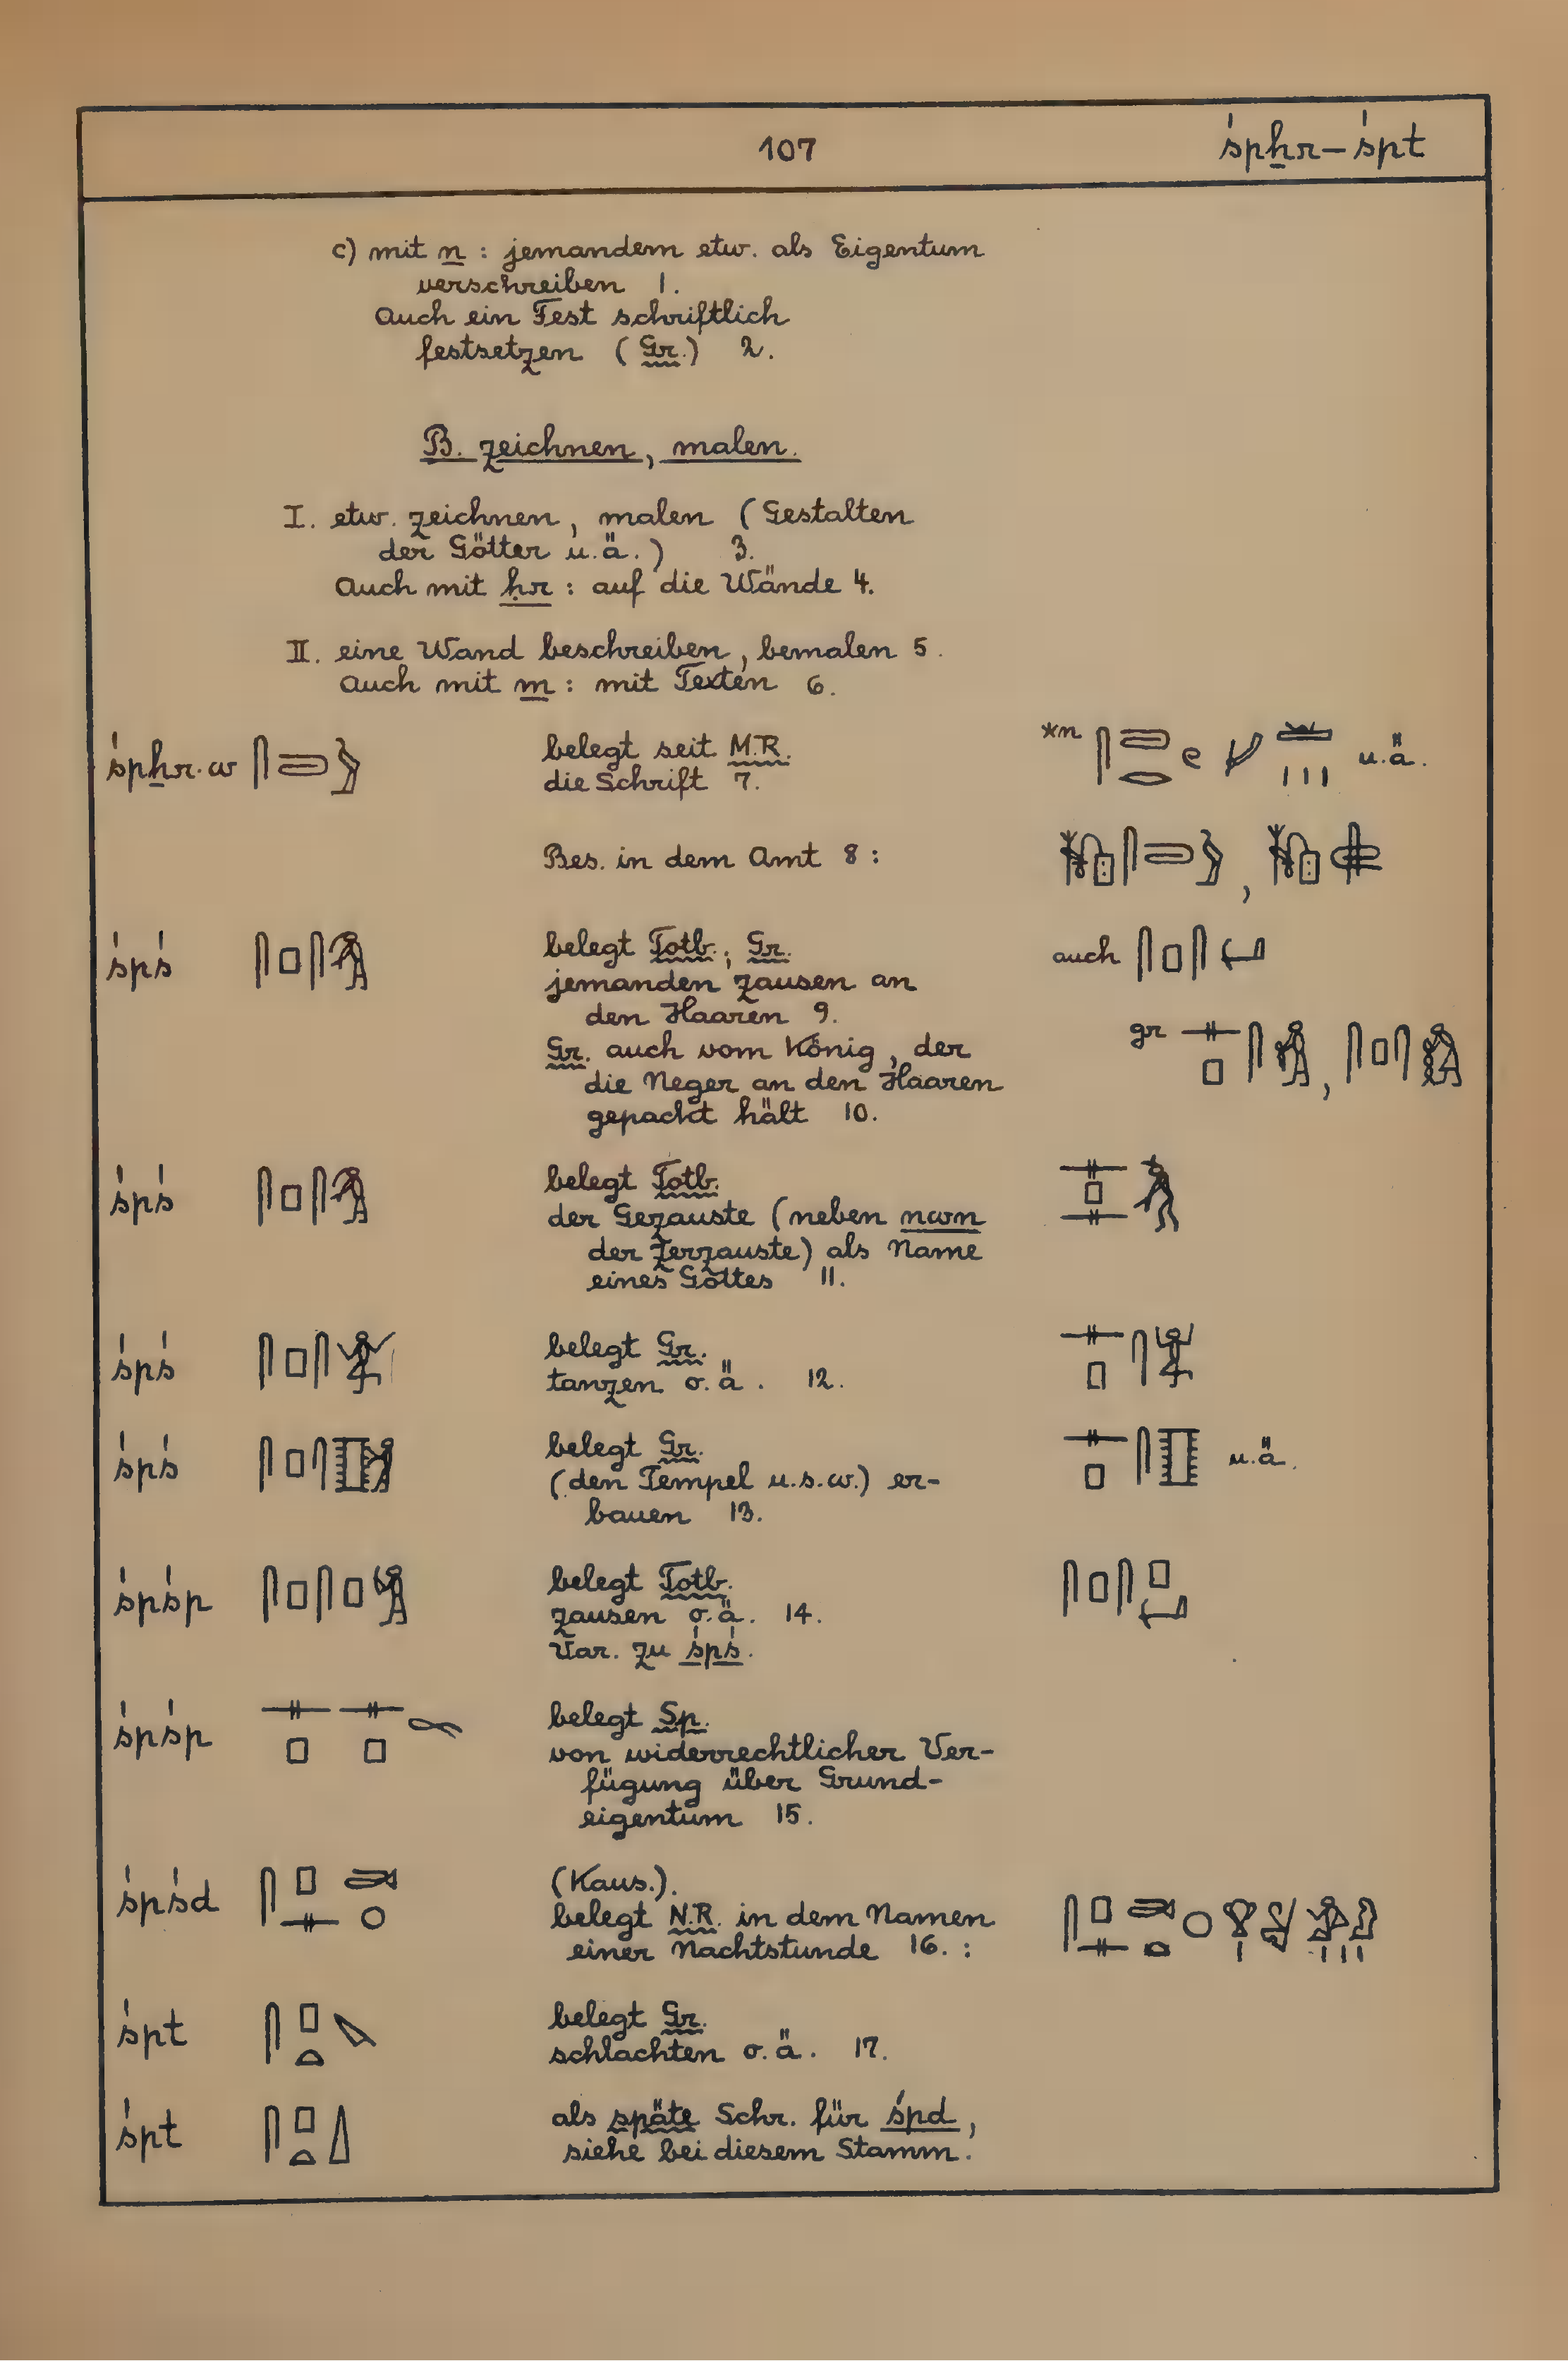 107
śpẖr – śpt
c) mit n : jemandem etw. als Eigentum
verschreiben 1.
Auch ein Fest schriftlich
festsetzen (Gr.) 2.
B. zeichnen, malen.
I. etw. zeichnen, malen (Gestalten
der Götter u.ä.) 3.
Auch mit ḥr : auf die Wände 4.
II. eine Wand beschreiben, bemalen 5.
Auch mit m : mit Texten 6.
śpẖr.w belegt seit M.R. *n u.ä.
die Schrift 7.
Bes. in dem Amt 8 : ,
śpś belegt Totb.; Gr. auch
jemanden zausen an
den Haaren 9.
Gr. auch vom König, der gr ,
die Neger an den Haaren
gepackt hält 10.
śpś belegt Totb.
der Gezauste (neben nwn
der Zerzauste) als Name
eines Gottes 11.
śpś belegt Gr.
tanzen o.ä. 12.
śpś belegt Gr. u.ä.
(den Tempel u.s.w.) er-
bauen 13.
śpśp belegt Totb.
zausen o.ä. 14.
Var. zu śpś.
śpśp belegt Sp.
von widerrechtlicher Ver-
fügung über Grund-
eigentum 15.
śpśd (Kaus.).
belegt N.R. in dem Namen
einer Nachtstunde 16. :
śpt belegt Gr.
schlachten o.ä. 17.
śpt als späte Schr. für śpd,
siehe bei diesem Stamm.